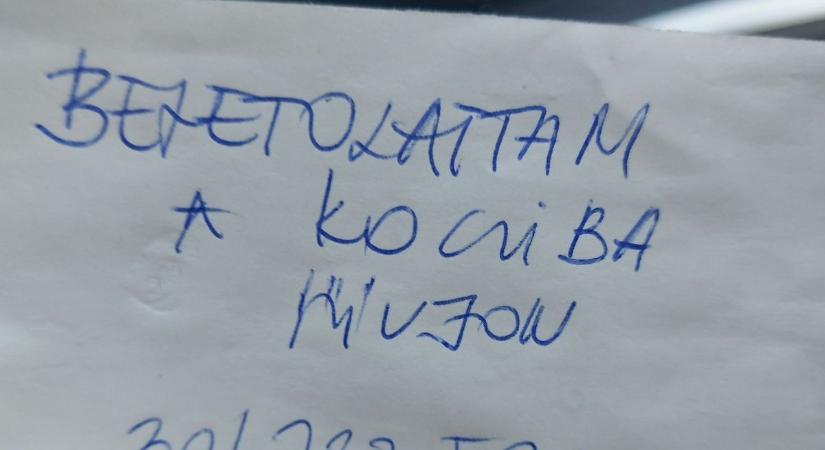 BELETOLATTAM
A KOCSIBA
HÍVJON
30/